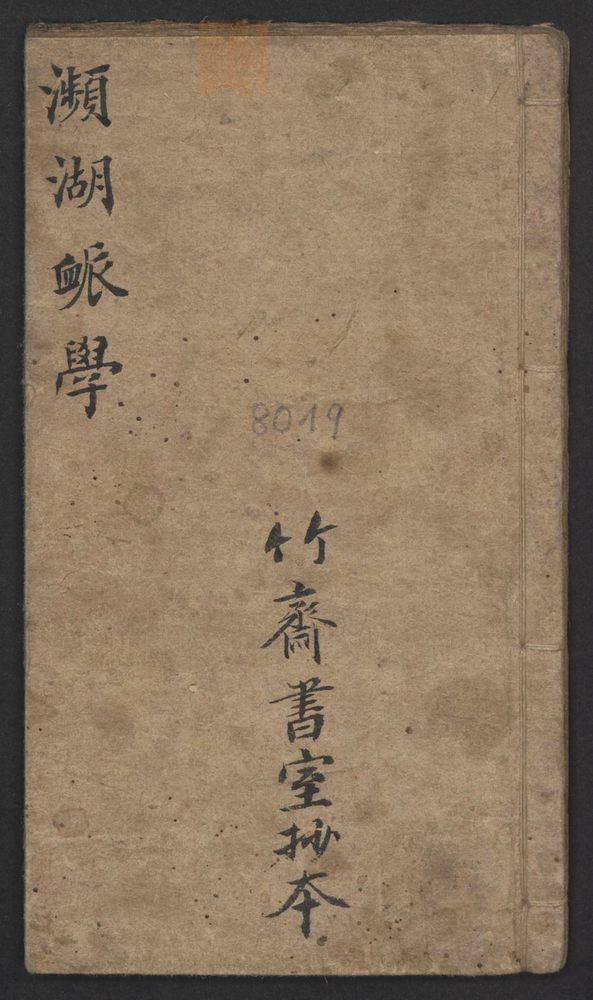 瀕湖衇學
8019
竹齋書室抄本